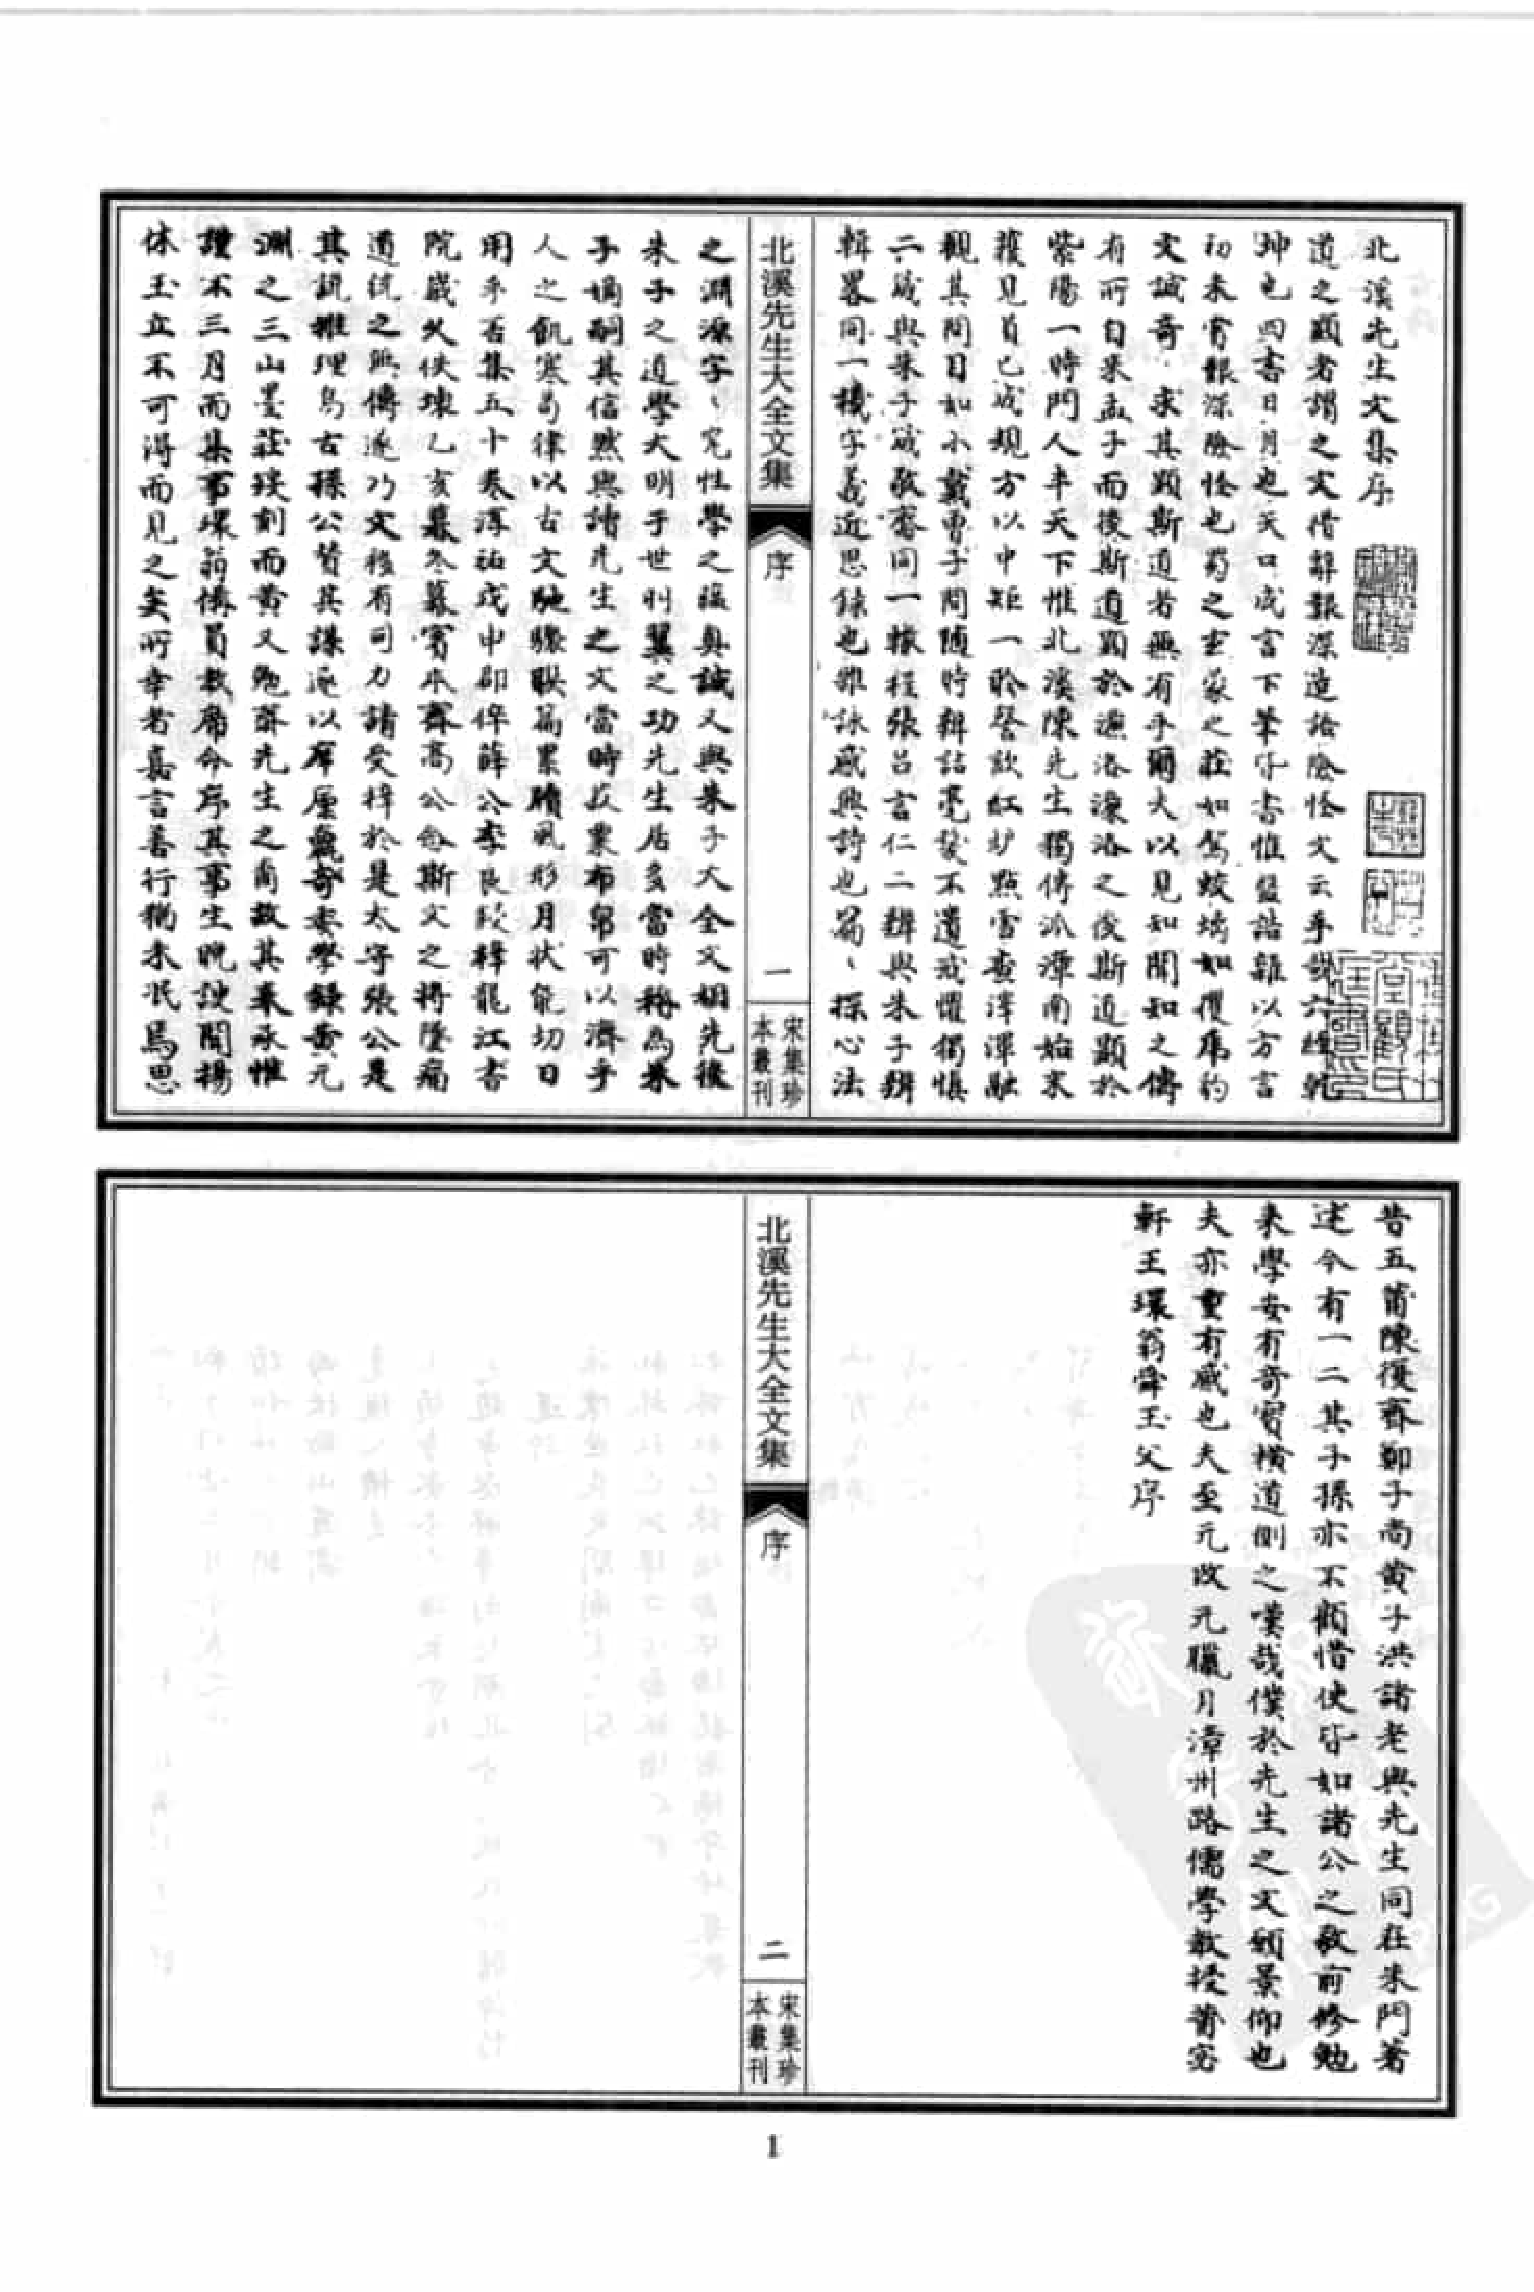 北溪先生文集序
道之顯者謂之文借辭艱深造語險怪文云乎哉六經乾
坤也四書日月也矢口成言下筆成書惟盤誥雜以方言
初未嘗艱深險怪也蜀之玄蒙之莊如駕蛟螭如攫虎豹
文誠奇求其顯斯道者無有乎爾夫以見知聞知之傳
有所自來孟子而後斯道顯於濂洛濂洛之後斯道顯於
紫陽一時門人半天下惟北溪陳先生獨傳派漳南始末
獲見首已成規方以中矩一聆謦欬紅爐點雪查滓渾融
觀其問目如小戴曾子問隨時辨詰毫髮不遺戒懼獨慎
二箴與朱子箴敬齋同一轍程張呂言仁二辨與朱子辨
輯畧同一機字義近思錄也雜詠感興詩也篇、探心法
北溪先生大全文集
序
一
宋集珍
本叢刊
之淵源字、究性學之蘊奧誠又與朱子大全文相先後
朱子之道學大明于世則翼之功先生居多當時稱為朱
子嫡嗣其信然與讀先生之文當時菽粟布帛可以濟乎
人之飢寒苟律以古文馳驟聯篇累牘風形月狀能切日
用乎否集五十卷淳祐戊申郡倅薛公李良段梓龍江書
院歲久佚壞乙亥暮冬幕賓本齋高公每斯文之將墜痛
道統之無傳遂乃文移有司力請受梓於是太守張公是
其說推理烏古孫公贊其謀遂以庠廛甎奇安學錄黃元
淵之三山墨莊鋟刻而黃又勉齋先生之裔故其秉承惟
謹不三月而集事環翁忝員教席今序其事生晚謏聞揚
休玉立不可得而見之矣所幸者嘉言善行猶未泯焉思
昔五莆陳復齋鄭子尚黃子洪諸老與先生同在朱門著
述今有一二其子孫亦不顧惜使皆如諸公之敬前修勉
來學安有奇寶橫道側之嘆哉僕於先生之文願景仰也
夫亦重有感也夫至元改元臘月漳州路儒學教授莆宓
軒王環翁舜玉父序
北溪先生大全文集
序
二
宋集珍
本叢刊
1